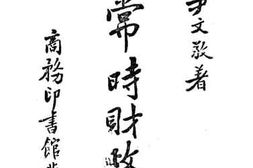 尹文敬著
常時財政
商務印書館